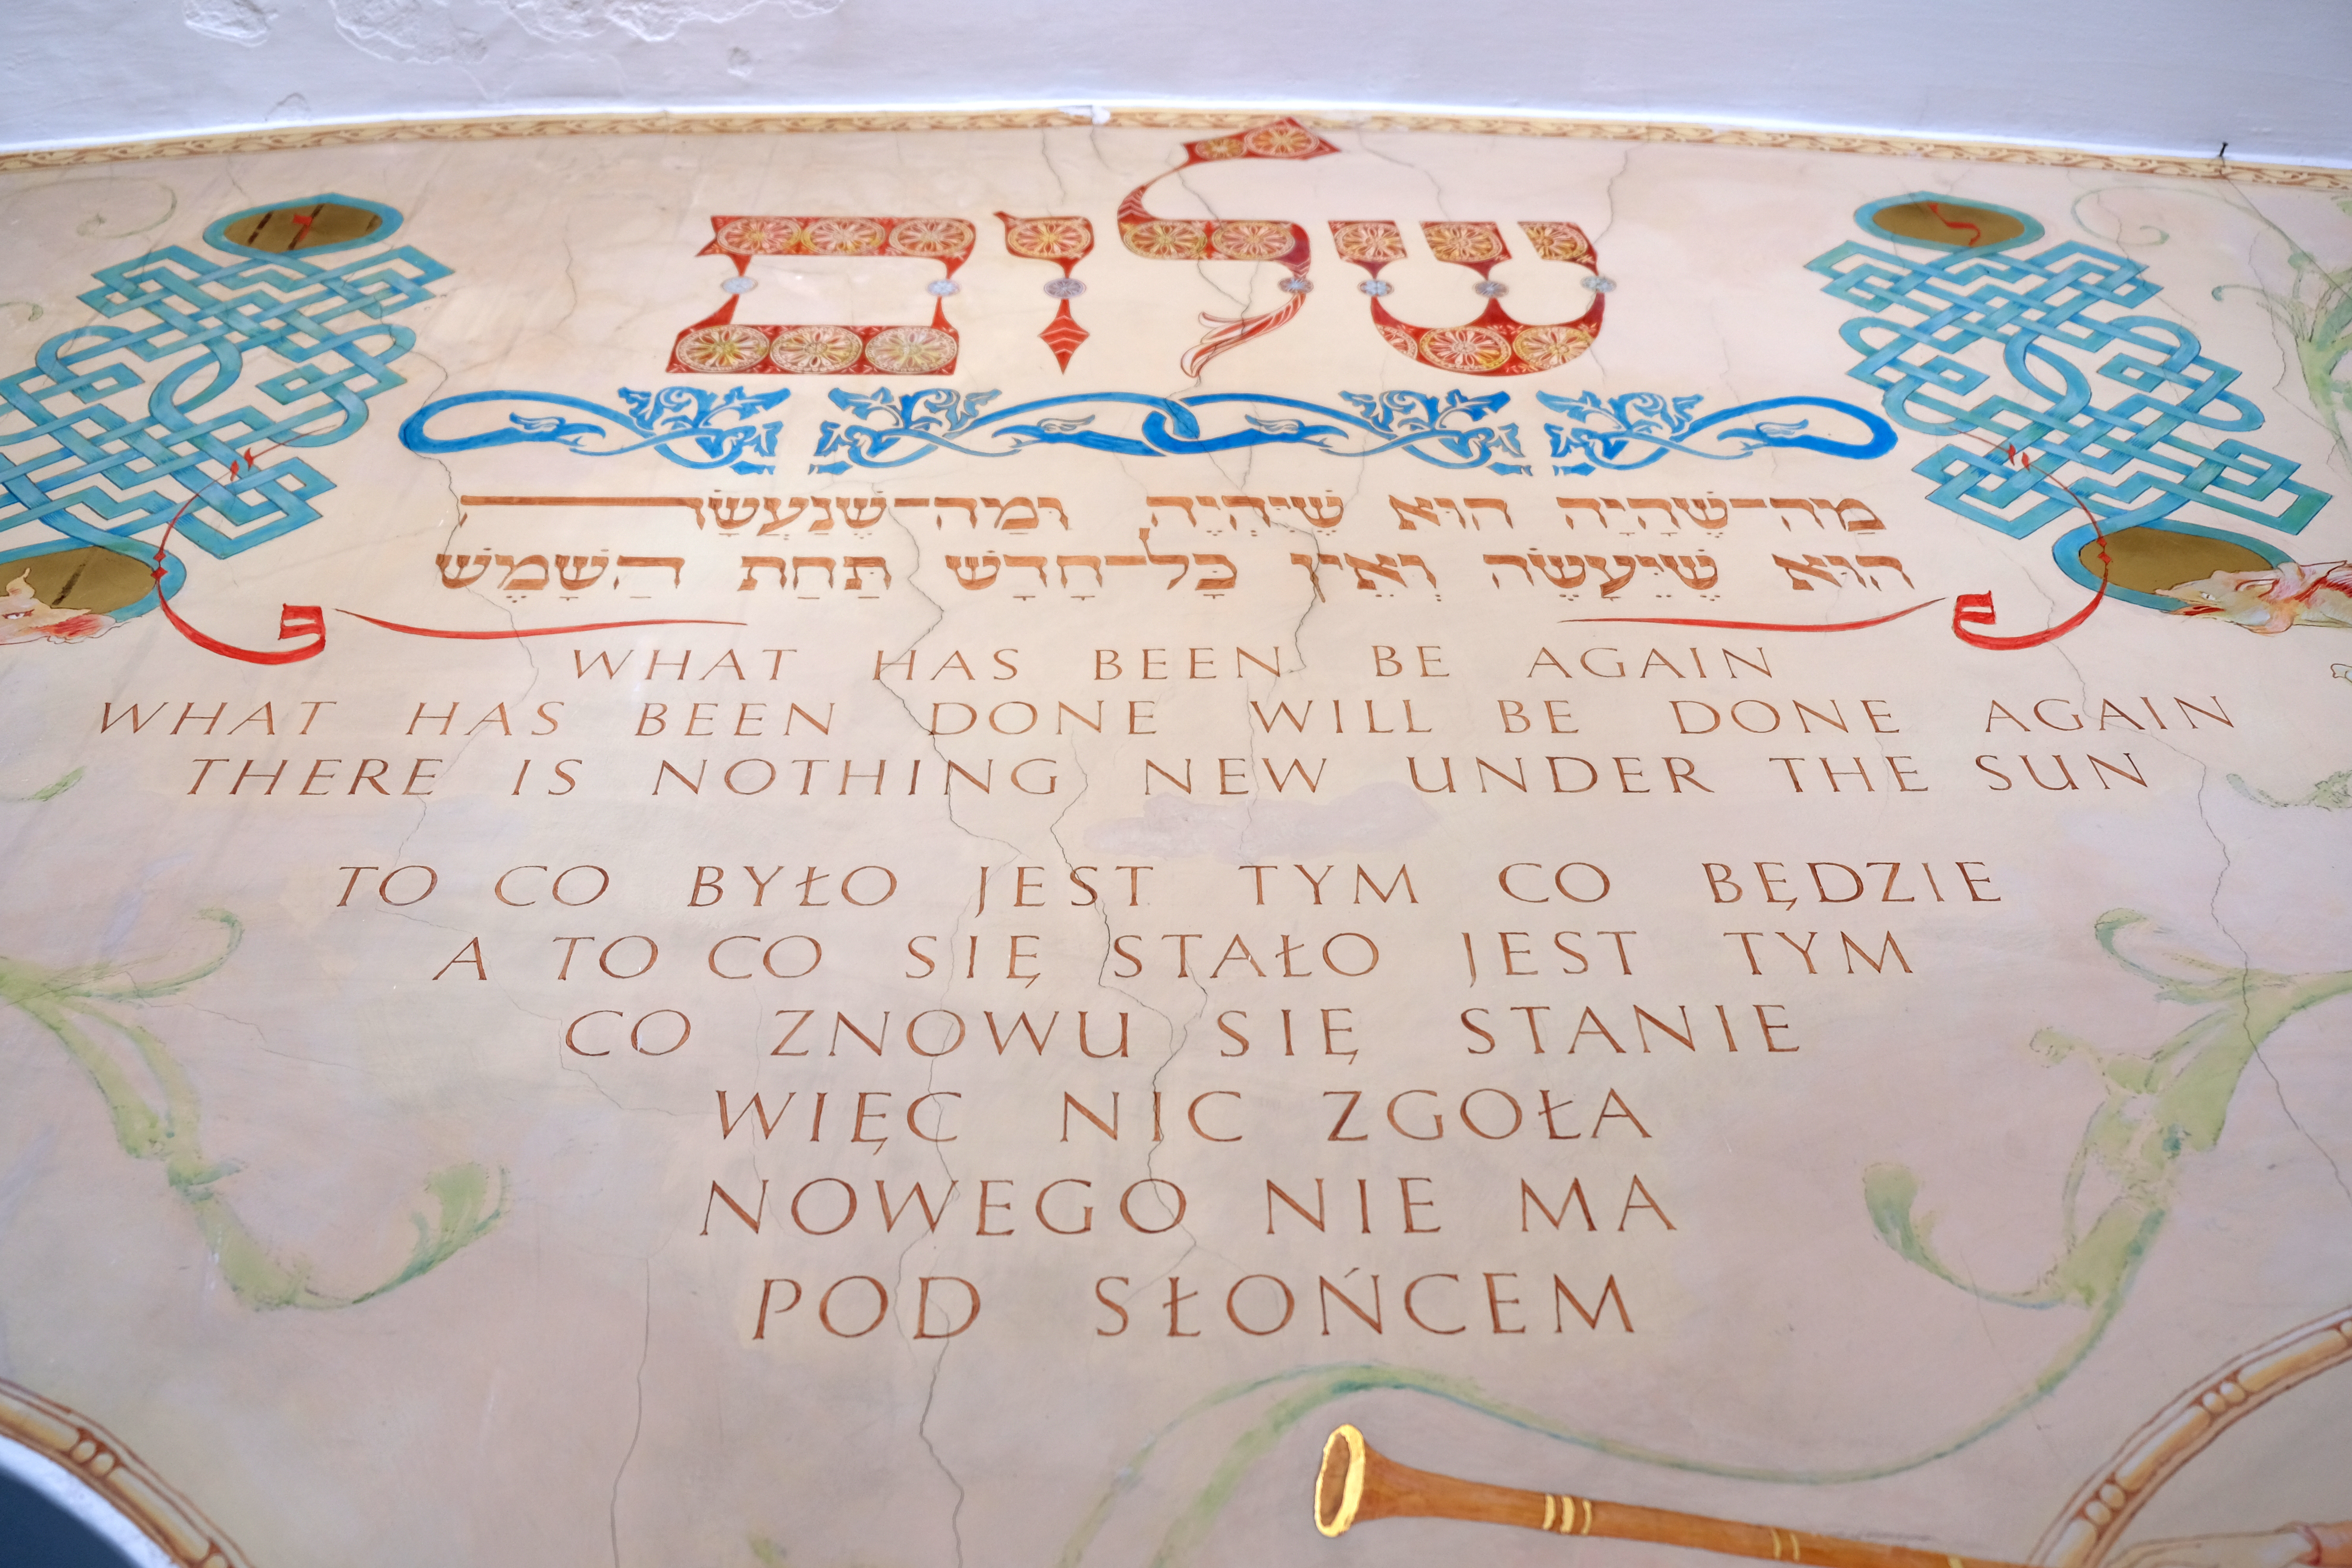 שלום
מַה־שֶׁהָיָה הוּא שֶׁיִּהְיֶה וּמַה־שֶׁנַּעֲשָׂה
הוּא שֶׁיֵּעָשֶׂה וְאֵין כָּל־חָדָשׁ תַּחַת הַשָּׁמֶשׁ
WHAT HAS BEEN BE AGAIN
WHAT HAS BEEN DONE WILL BE DONE AGAIN
THERE IS NOTHING NEW UNDER THE SUN
TO CO BYŁO JEST TYM CO BĘDZIE
A TO CO SIĘ STAŁO JEST TYM
CO ZNOWU SIĘ STANIE
WIĘC NIC ZGOŁA
NOWEGO NIE MA
POD SŁOŃCEM